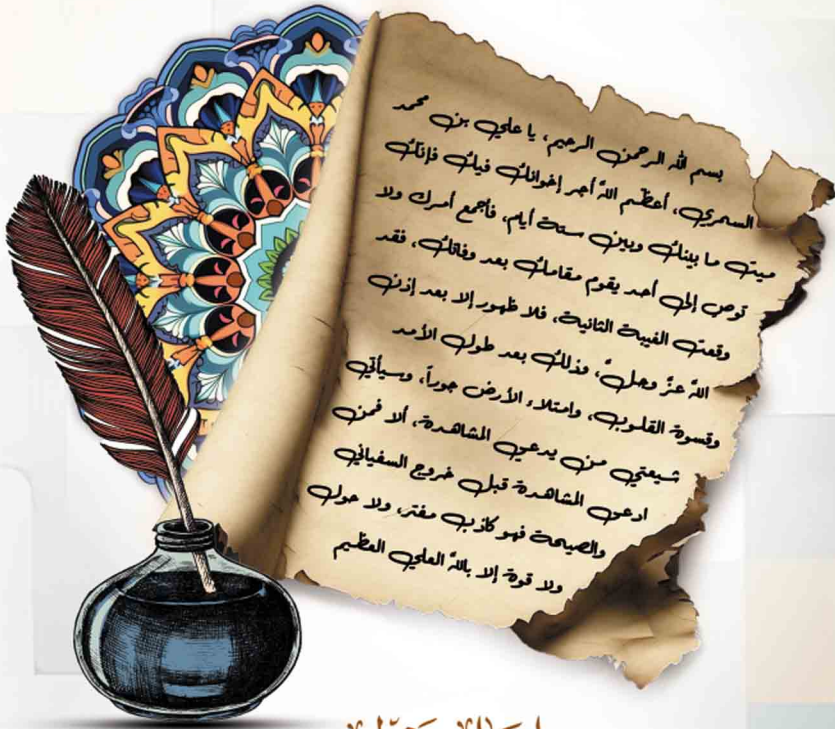 بسم الله الرحمن الرحيم، يا علي بن محمد
السمري، أعظم اللهُ أجر إخوانك فيك فإنك
ميت ما بينك وبين ستة أيام، فأجمع أمرك ولا
توص إلى أحد يقوم مقامك بعد وفاتك، فقد
وقعت الغيبة الثانية، فلا ظهور إلا بعد إذن
اللهُ عزَّ وجلَّ، وذلك بعد طول الأمد
وقسوة القلوب، وامتلاء الأرض جوراً، وسيأتي
شيعتي من يدعي المشاهدة، ألا فمن
ادعى المشاهدة قبل خروج السفياني
والصيحة فهو كاذب مفتر، ولا حول
ولا قوة إلا باللهُ العلي العظيم